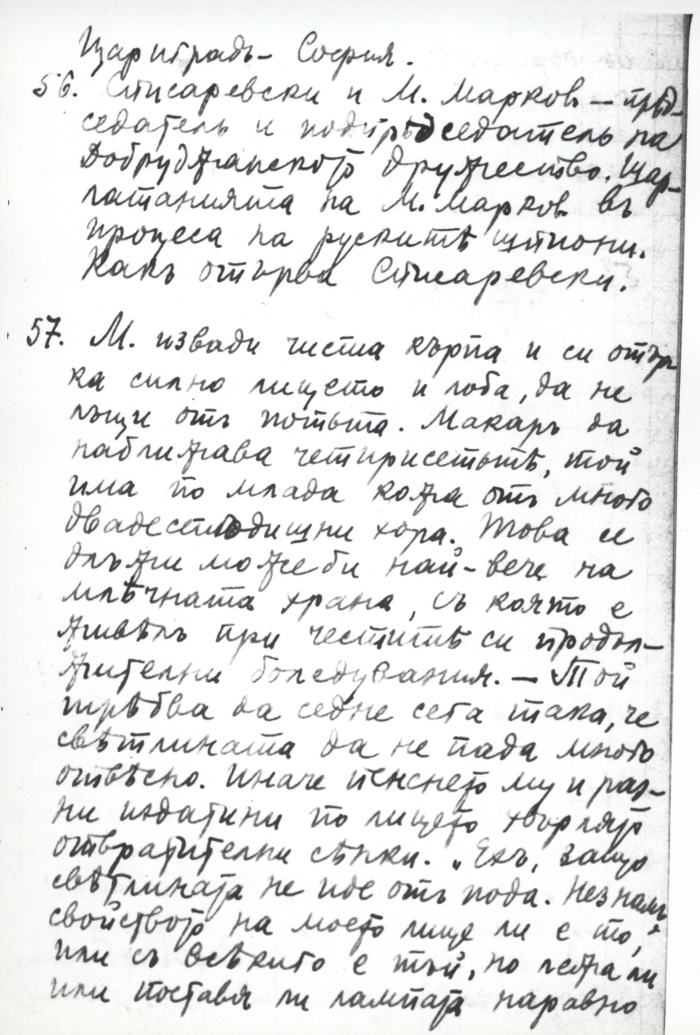 Цариградъ – София.
56. Списаревски и М. Марков – пред-
седатель и подпредседатель на
Добруджанското дружество. Шар-
латанията на М. Марков въ
процеса на рускитѣ шпиони.
Какъ отърва Списаревски.
57. М. извади чиста кърпа и си отър-
ка силно лицето и лоба, да не
лъщи отъ потьта. Макаръ да
наближава четирисетьтѣ, той
има по млада кожа отъ много
двадесетгодишни хора. Това се
длъжи може би най-вече на
млѣчната храна, съ която е
живѣлъ при честитѣ си продъл-
жителни боледувания. – Той
трѣбва да седне сега така, че
свѣтлината да не пада много
отвѣсно. Иначе пенснето му и раз-
ни издатини по лицето хвърлят
отвратителни сѣнки. „Ехъ, защо
свѣтлината не иде отъ пода. Незнамъ
свойство на моето лице ли е то,
или съ всѣкиго е тъй, но лежа ли
или поставя ли лампата наравно